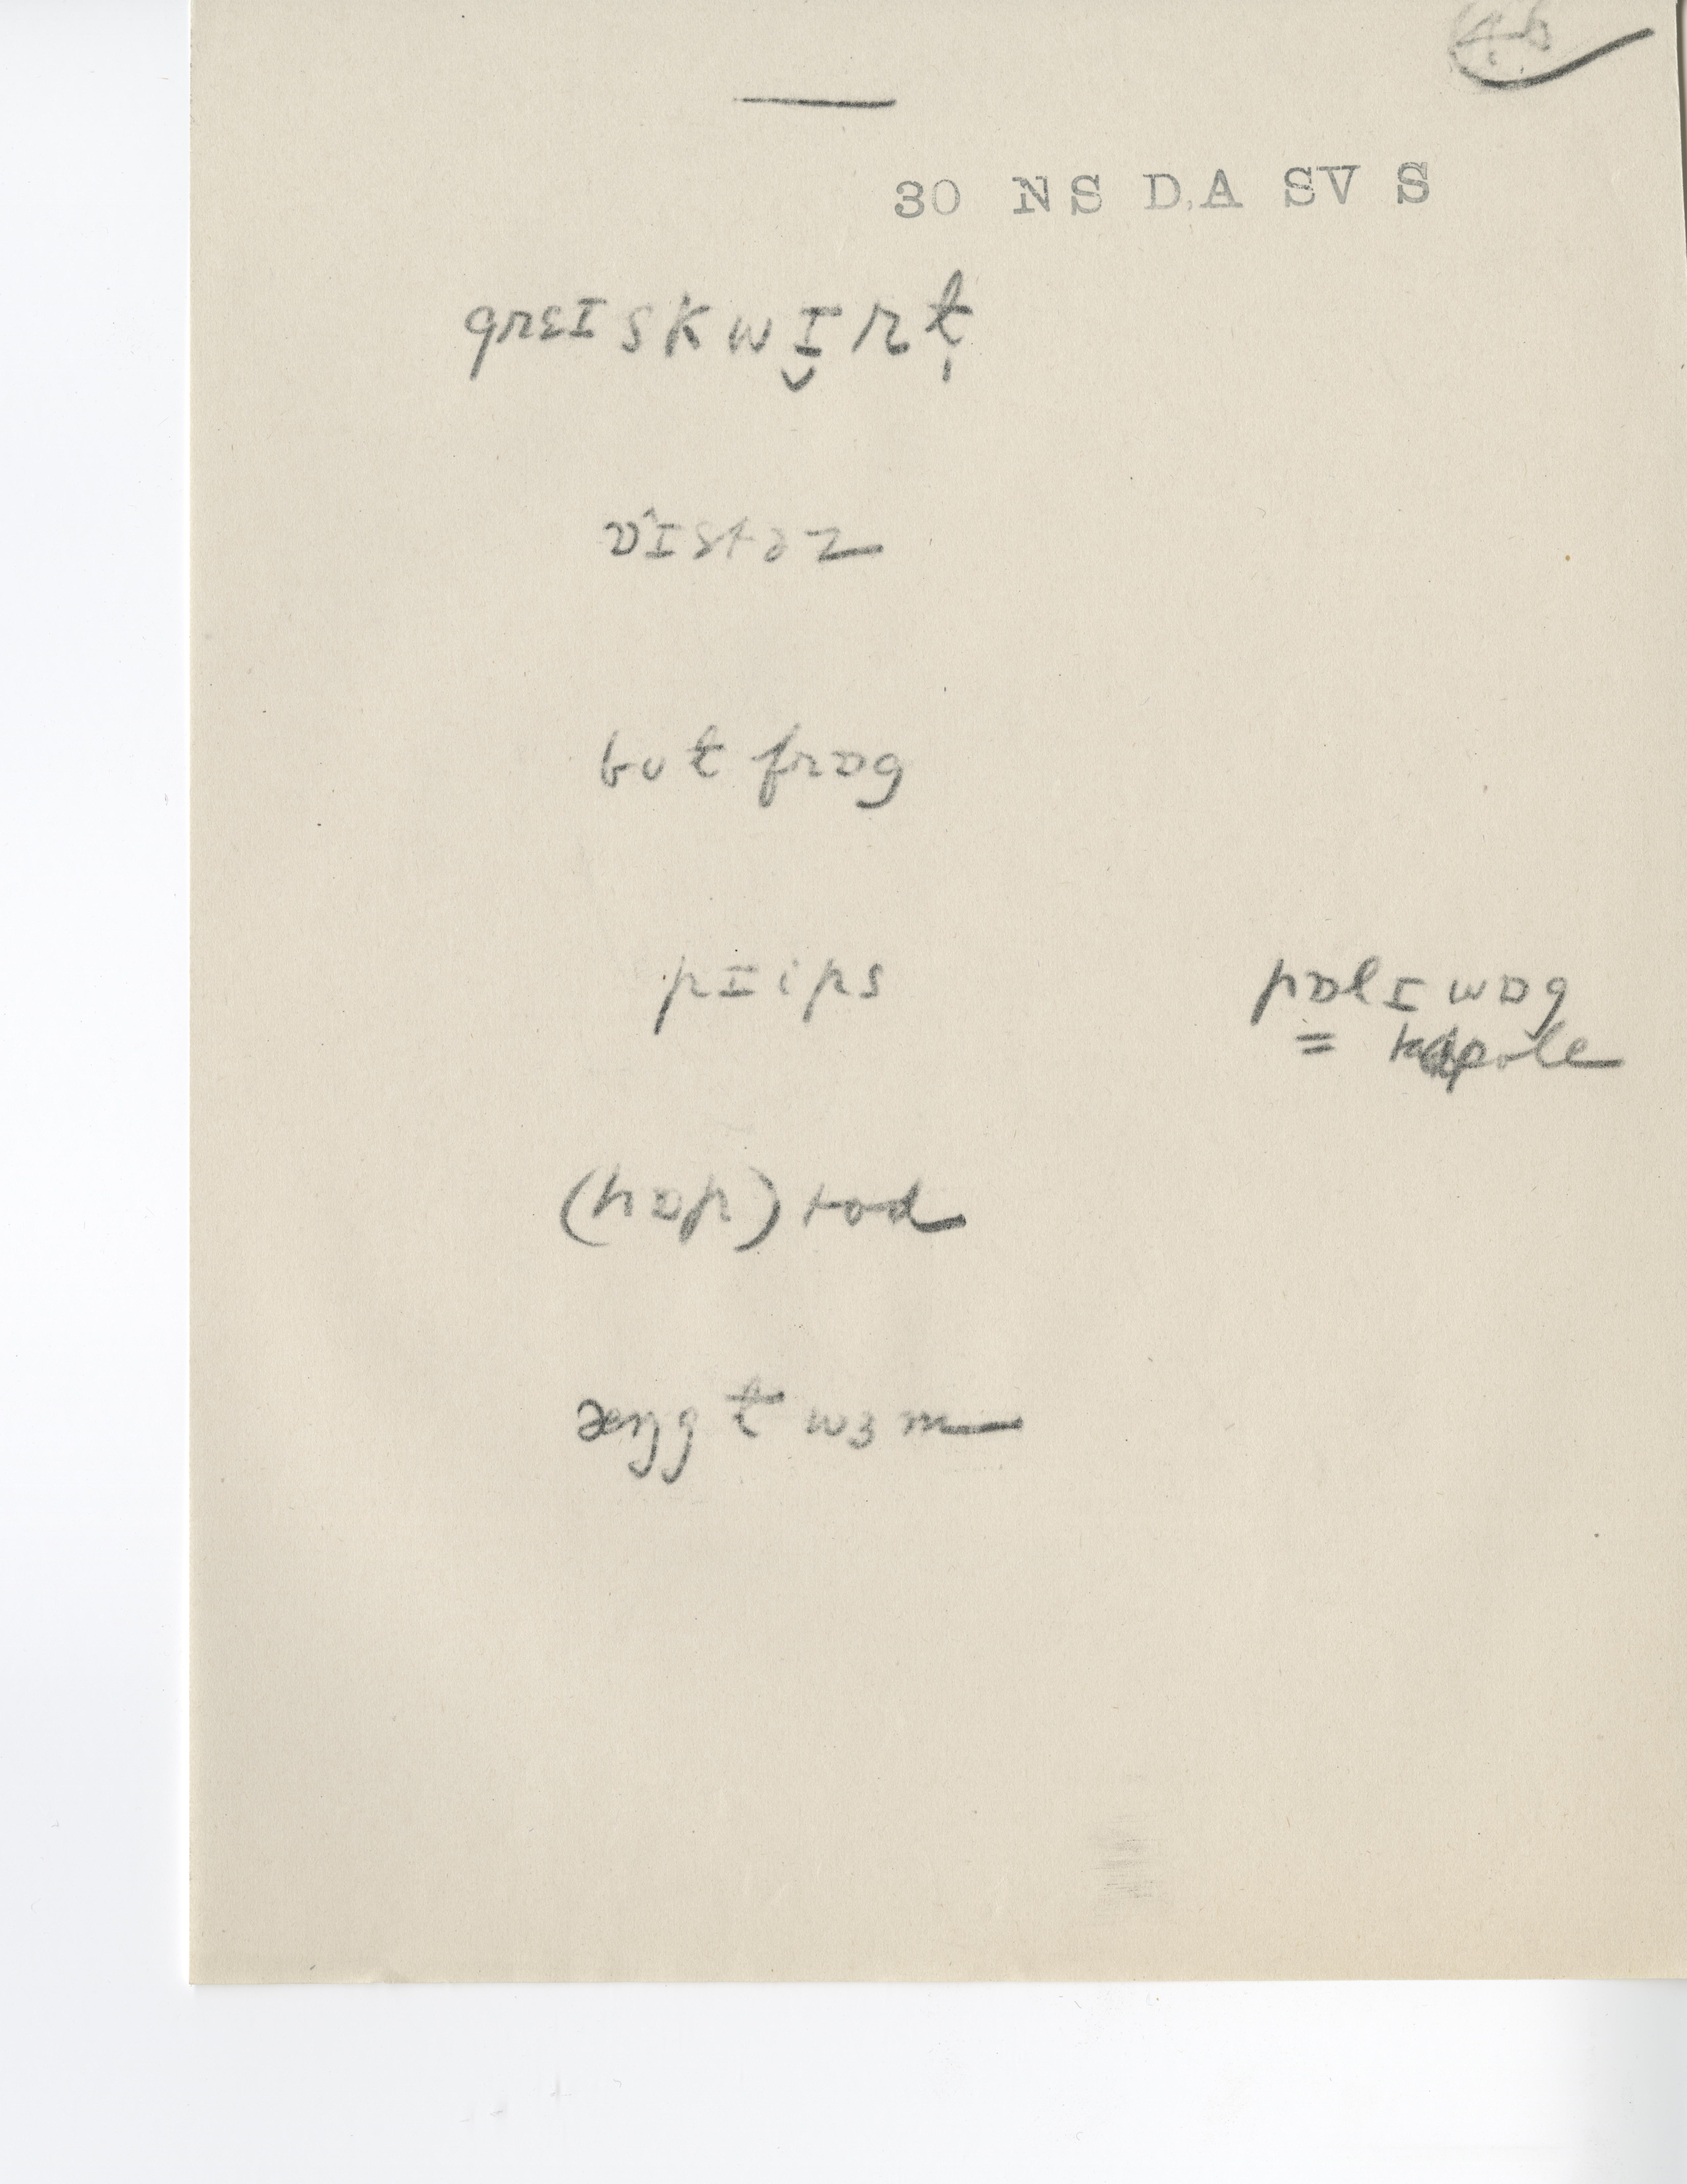 46
30 NS D.A SV S
grɛɪ skwɪ̬rt̩
ɒɪstəz
but frɒg
pɪips
pɒlɪwɒg
= tadpole
(hɒp) tod
æŋgḷt wɜm